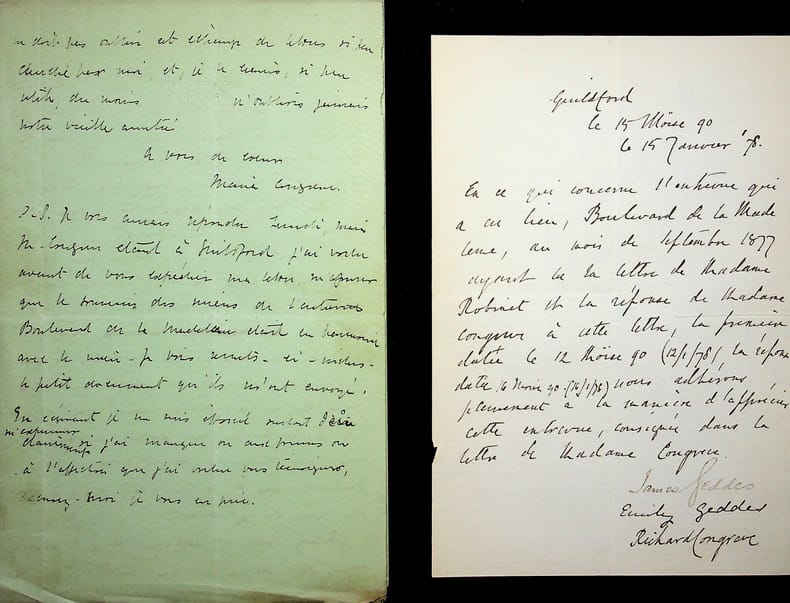 ne dois pas oublier cet échange de lettres si peu
cherché par moi et, je le crains, si peu
utile, du moins n'oublions jamais
notre vieille amitié
A vous de coeur
Maria Congreve.
P.S. Je vous aurais répondu Lundi, mais
M. Congreve étant à Guildford, j'ai voulu
avant de vous expédier ma lettre, m'assurer
que le souvenir des miens de l'entrevue
Boulevard de la Madeleine était en harmonie
avec le mien - Je vous remets - ci - inclus -
le petit document qu'ils m'ont envoyé.
En écrivant je me suis efforcé surtout d'être
m'exprimer
clairement si j'ai manqué ou aux formes ou
à l'affection que j'ai voulu vous témoigner,
excusez-moi je vous en prie.
Guildford
le 15 Moïse 90
le 15 Janvier '78.
En ce qui concerne l'entrevue qui
a eu lieu, Boulevard de la Made
leine, au mois de Septembre 1877
ayant lu la lettre de Madame
Robinet et la réponse de Madame
Congreve à cette lettre, la première
datée le 12 Moïse 90 (12/1/78) la réponse
date 16 Moïse 90 (16/1/78) nous adhérons
pleinement à la manière d'apprécier
cette entrevue, consignée dans la
lettre de Madame Congreve.
James Geddes
Emily Geddes
Richard Congreve